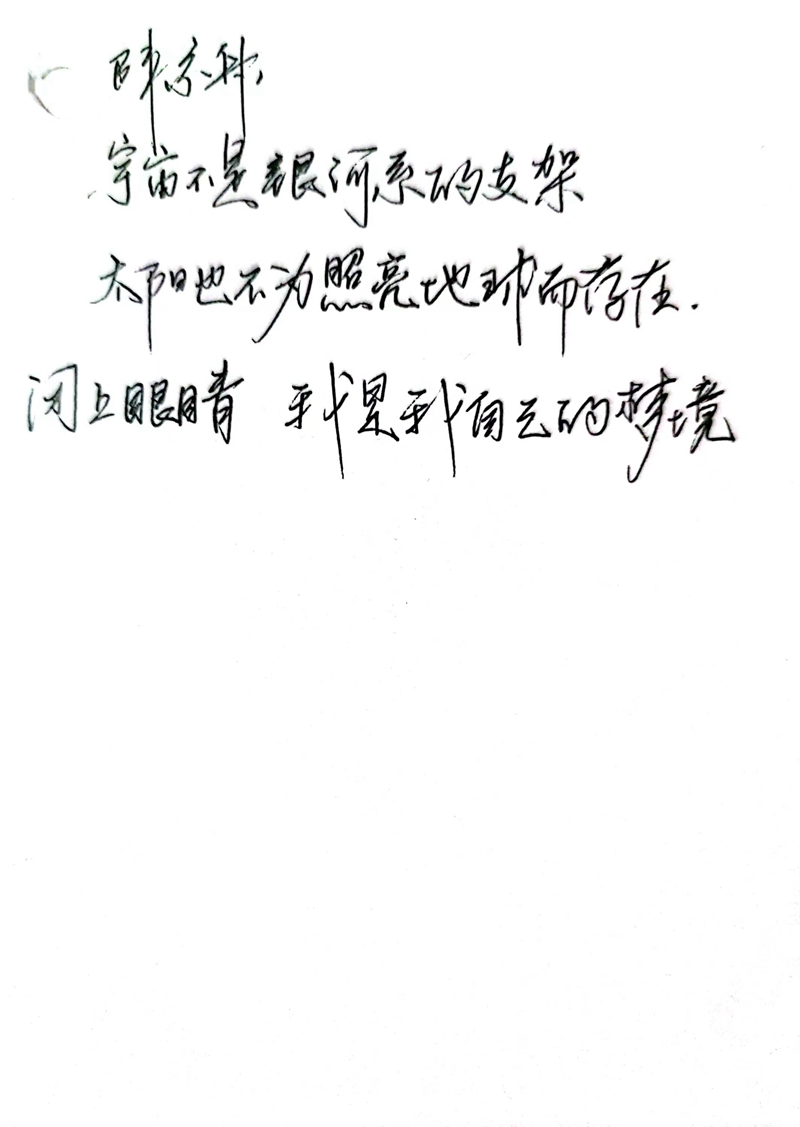 陈京科,
宇宙不是银河系的支架
太阳也不为照亮地球而存在.
闭上眼睛 我是我自己的梦境